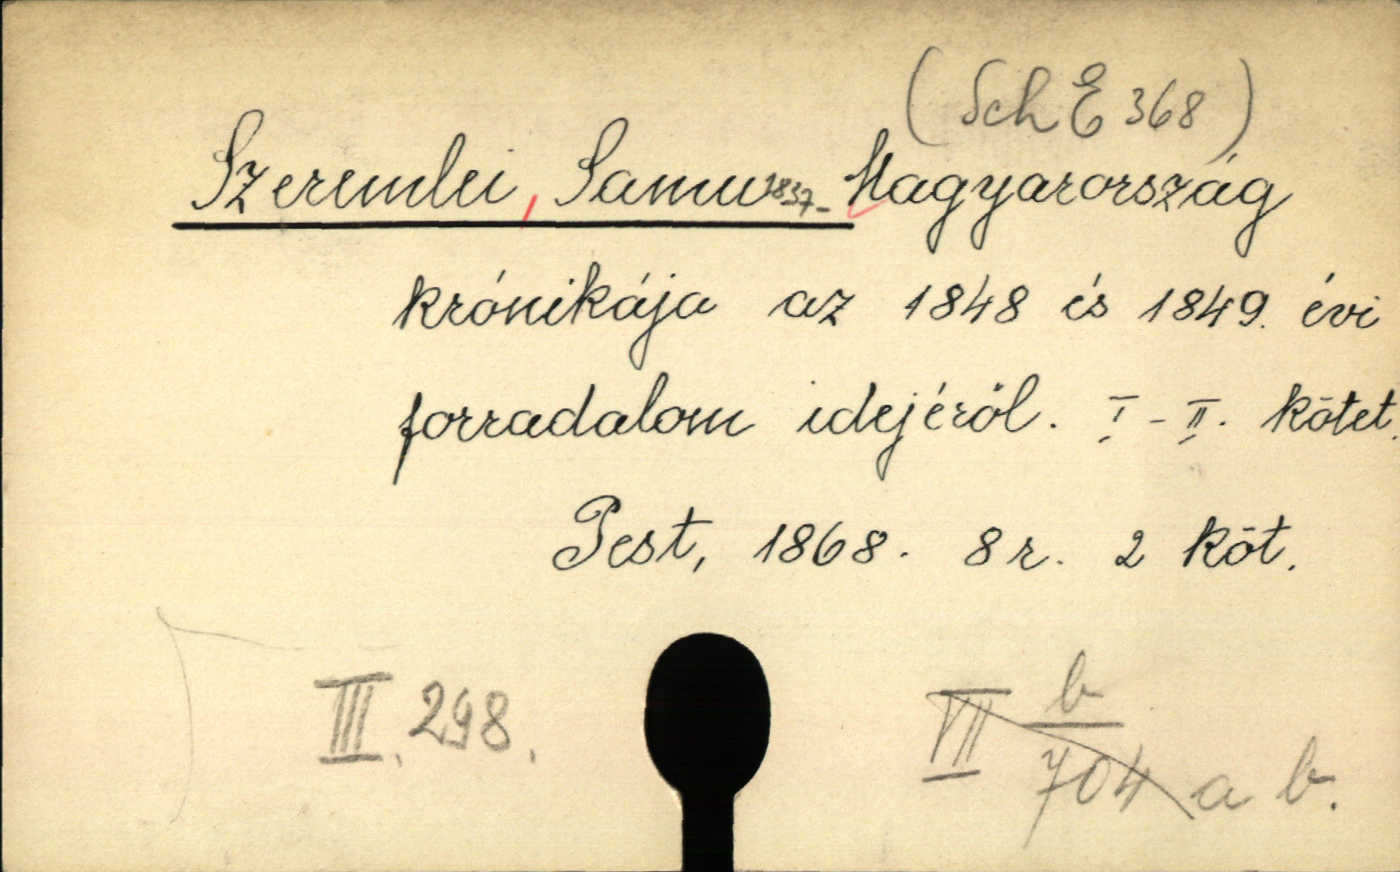 (Sch E 368)
Szeremlei, Samu 1837- Magyarország
krónikája az 1848 és 1849. évi
forradalom idejéről. I-II. kötet.
Pest, 1868. 8r. 2 köt.
III. 298.
VII b/704 a b.